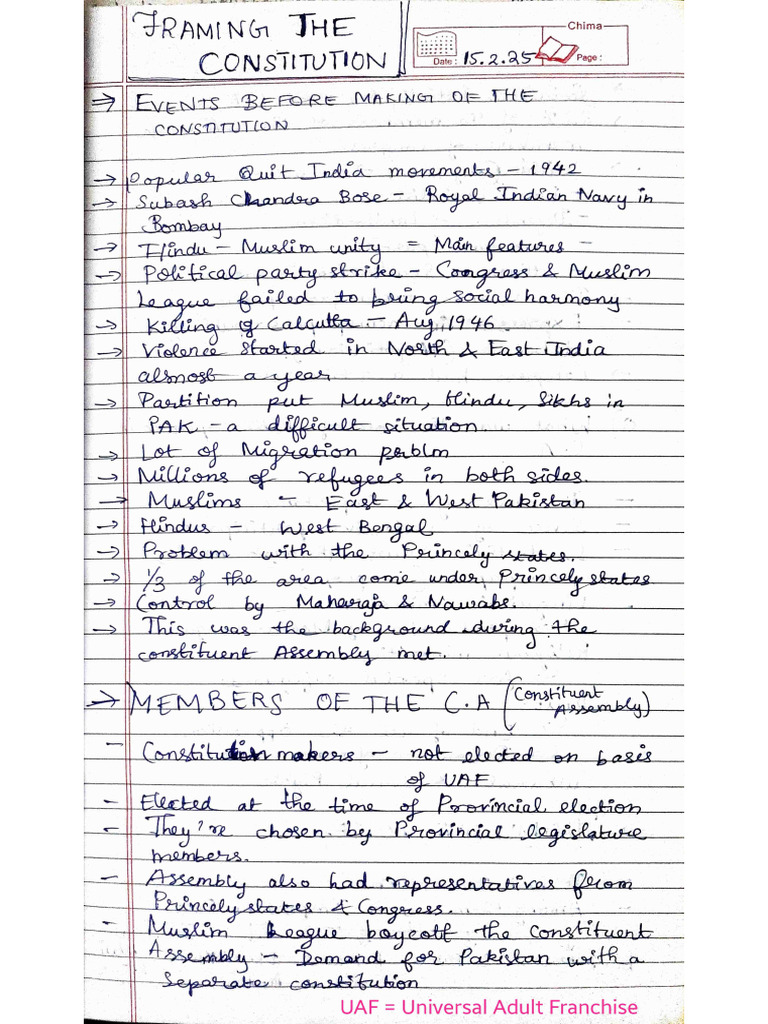 FRAMING THE
CONSTITUTION
Chima
Date: 15.2.25 Page:
⇒ EVENTS BEFORE MAKING OF THE
CONSTITUTION
→ Popular Quit India movements - 1942
→ Subash Chandra Bose - Royal Indian Navy in
Bombay
→ Hindu - Muslim unity = Main features -
→ Political party strike - Congress & Muslim
League failed to bring social harmony
→ Killing of Calcutta - Aug, 1946.
→ Violence started in North & East India
almost a year
→ Partition put Muslim, Hindu, Sikhs in
PAK - a difficult situation
→ Lot of Migration porblm
→ Millions of refugees in both sides.
→ Muslims - East & West Pakistan
→ Hindus - West Bengal
→ Problem with the Princely states.
→ 1/3 of the area come under Princely states
→ Control by Maharaja & Nawabs.
→ This was the background during the
constituent Assembly met.
→ MEMBERS OF THE C.A (Constituent
Assembly)
- Constitution makers - not elected on basis
of UAF
- Elected at the time of Provincial election
- They're chosen by Provincial legislature
members.
- Assembly also had representatives from
Princely states & Congress.
- Muslim League boycott the Constituent
Assembly - Demand for Pakistan with a
separate constitution
UAF = Universal Adult Franchise